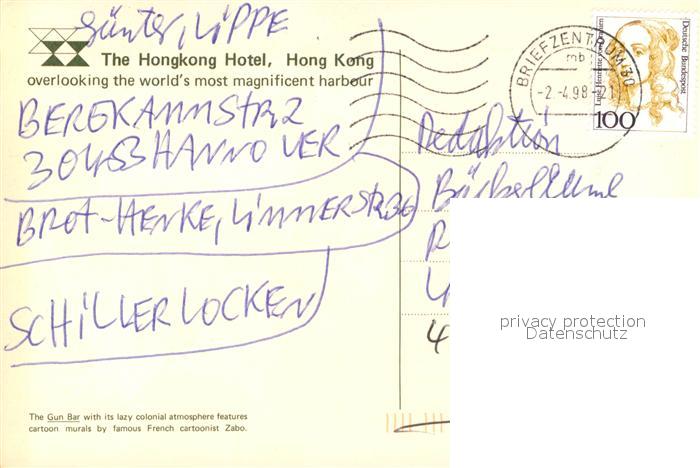 Günter, LIPPE
The Hongkong Hotel, Hong Kong
overlooking the world's most magnificent harbour
BERGKAMMSTR 2
30453 HANNOVER
BROT-HENKE, LIMMERSTR 36
SCHILLERLOCKEN
The Gun Bar with its lazy colonial atmosphere features
cartoon murals by famous French cartoonist Zabo.
BRIEFZENTRUM 30
mb
-2.-4.98-21
Deutsche Bundespost
100
Redaktion
R
4
privacy protection
Datenschutz